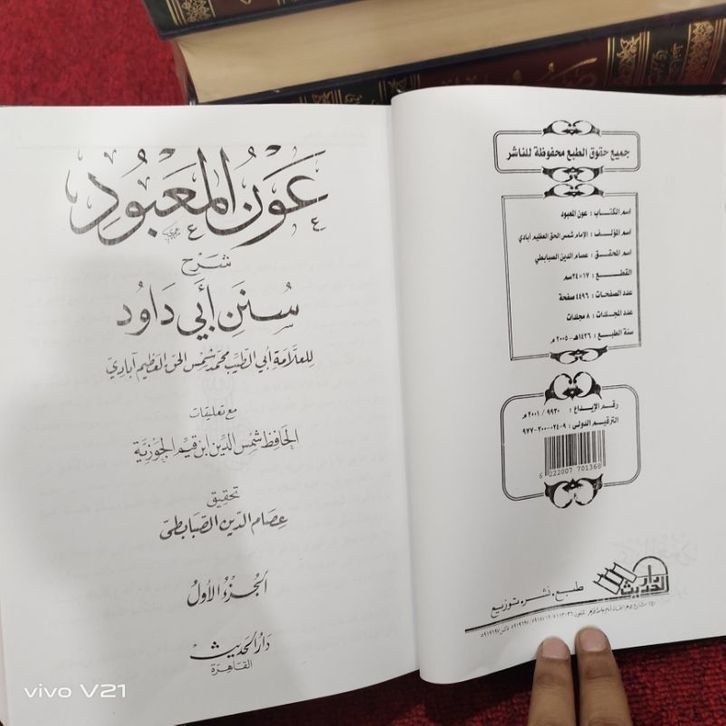 عَونُ المَعبُود
شَرح
سُنَن أَبي دَاود
للعلّامة أبي الطيب محمد شمس الحق العظيم آبادي
مع تعليقات
الحافظ شمس الدين ابن قيم الجوزية
تحقيق
عصام الدين الصبابطى
الجزء الأول
دار الحديث
القاهرة
جميع حقوق الطبع محفوظة للناشر
اسم الكتاب : عون المعبود
اسم المؤلف : الإمام شمس الحق العظيم أبادي
اسم المحقق : عصام الدين الصبابطي
القطع : ١٧×٢٤سم
عدد الصفحات : ٤٤٩٦ صفحة
عدد المجلدات : ٨ مجلدات
سنة الطبع : ١٤٢٦هـ - ٢٠٠٥ م
رقم الإيداع : ٩٩٣٠ / ٢٠٠١ م
الترقيم الدولي : ٩-٠٢٤-٣٠٠-٩٧٧
6 222007 701360
دار الحديث
طبع . نشر . توزيع
vivo V21